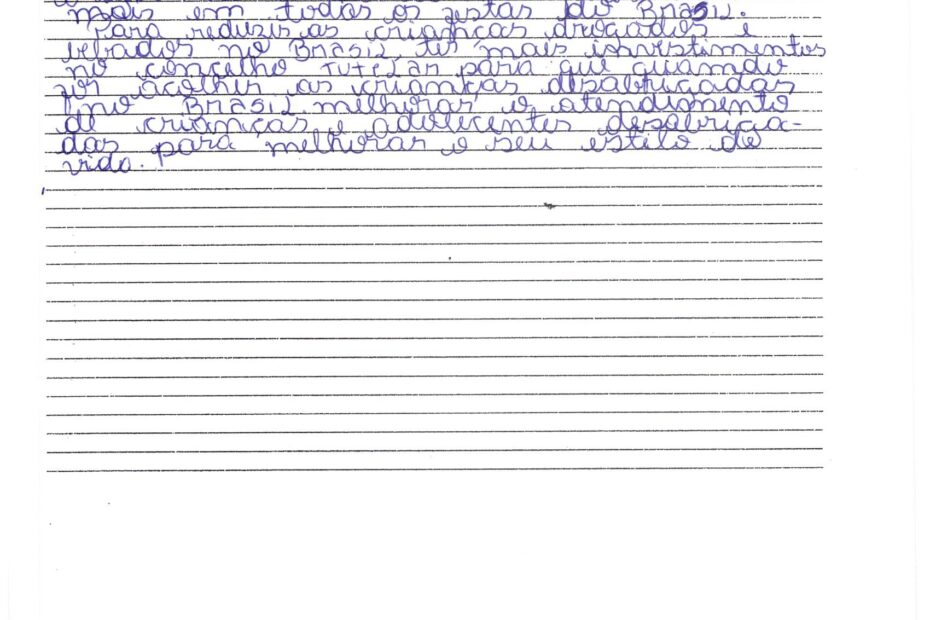 mais em todas as festas do Brasil.
Para reduzir as crianças drogados e
bebados no Brasil ter mais investimentos
no concelho Tutelar para que quamdo
for acolher as crianças desabrigadas
no Brasil melhorar o atendimento
de crianças e adolecentes desabriga-
das para melhorar o seu estilo de
vida.